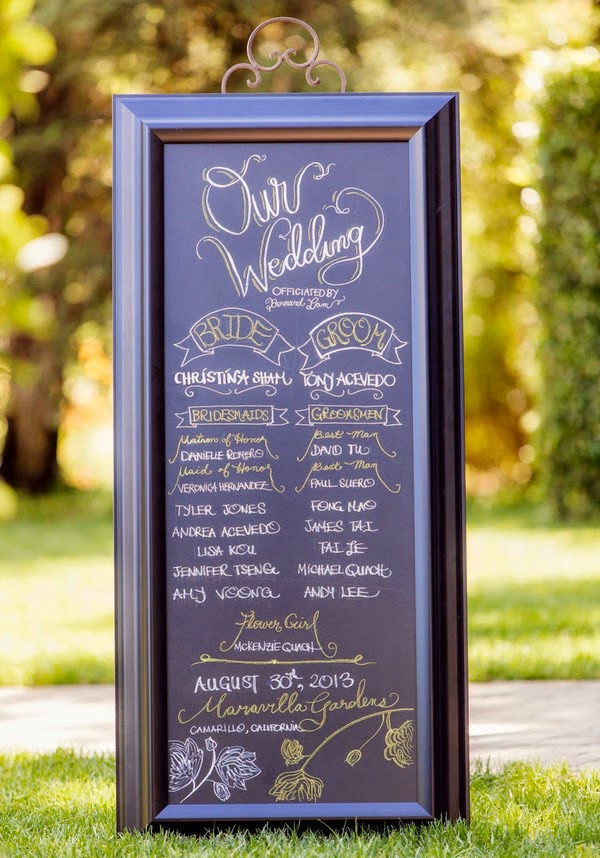 Our
Wedding
OFFICIATED BY
Bernard Lam
BRIDE GROOM
CHRISTINA SHAM TONY ACEVEDO
BRIDESMAIDS GROOMSMEN
Matron of Honor Best Man
DANIELLE ROMERO DAVID TU
Maid of Honor Best Man
VERONICA HERNANDEZ PAUL SUERO
TYLER JONES FONG MAO
ANDREA ACEVEDO JAMES TAI
LISA KOU TAI LE
JENNIFER TSENG MICHAEL QUACH
AMY VOONG ANDY LEE
Flower Girl
MCKENZIE QUACH
AUGUST 30TH, 2013
Maravilla Gardens
CAMARILLO, CALIFORNIA